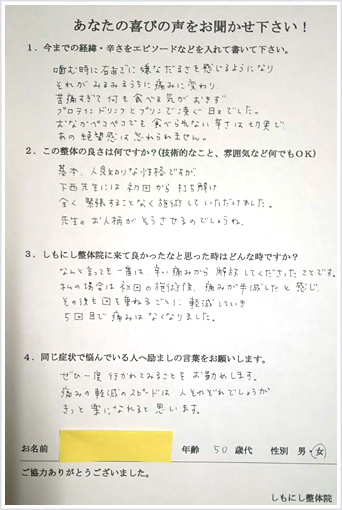 あなたの喜びの声をお聞かせ下さい！
１．今までの経緯・辛さをエピソードなどを入れて書いて下さい。
噛む時に右あごに嫌なだるさを感じるようになり
それがみるみるうちに痛みに変わり、
苦痛すぎて何も食べる気がおきず
プロテインドリンクとプリンで凌ぐ日々でした。
おなかペコペコでも食べられない辛さは切実で
あの絶望感は忘れられません。
２．この整体の良さは何ですか？（技術的なこと、雰囲気など何でもＯＫ）
基本、人見知りな性格ですが
下西先生には初回から打ち解け
全く緊張することなく施術していただけました。
先生のお人柄がそうさせるのでしょうね。
３．しもにし整体院に来て良かったなと思った時はどんな時ですか？
なんと言っても一番は、辛い痛みから解放してくださったことです。
私の場合は初回の施術後、痛みが半減したと感じ
その後も回を重ねるごとに軽減していき
５回目で痛みはなくなりました。
４．同じ症状で悩んでいる人へ励ましの言葉をお願いします。
ぜひ一度行かれてみることをお勧めします。
痛みの軽減のスピードは人それぞれでしょうが
きっと楽になれると思います。
お名前 年齢 50 歳代 性別 男・女
ご協力ありがとうございました。
しもにし整体院